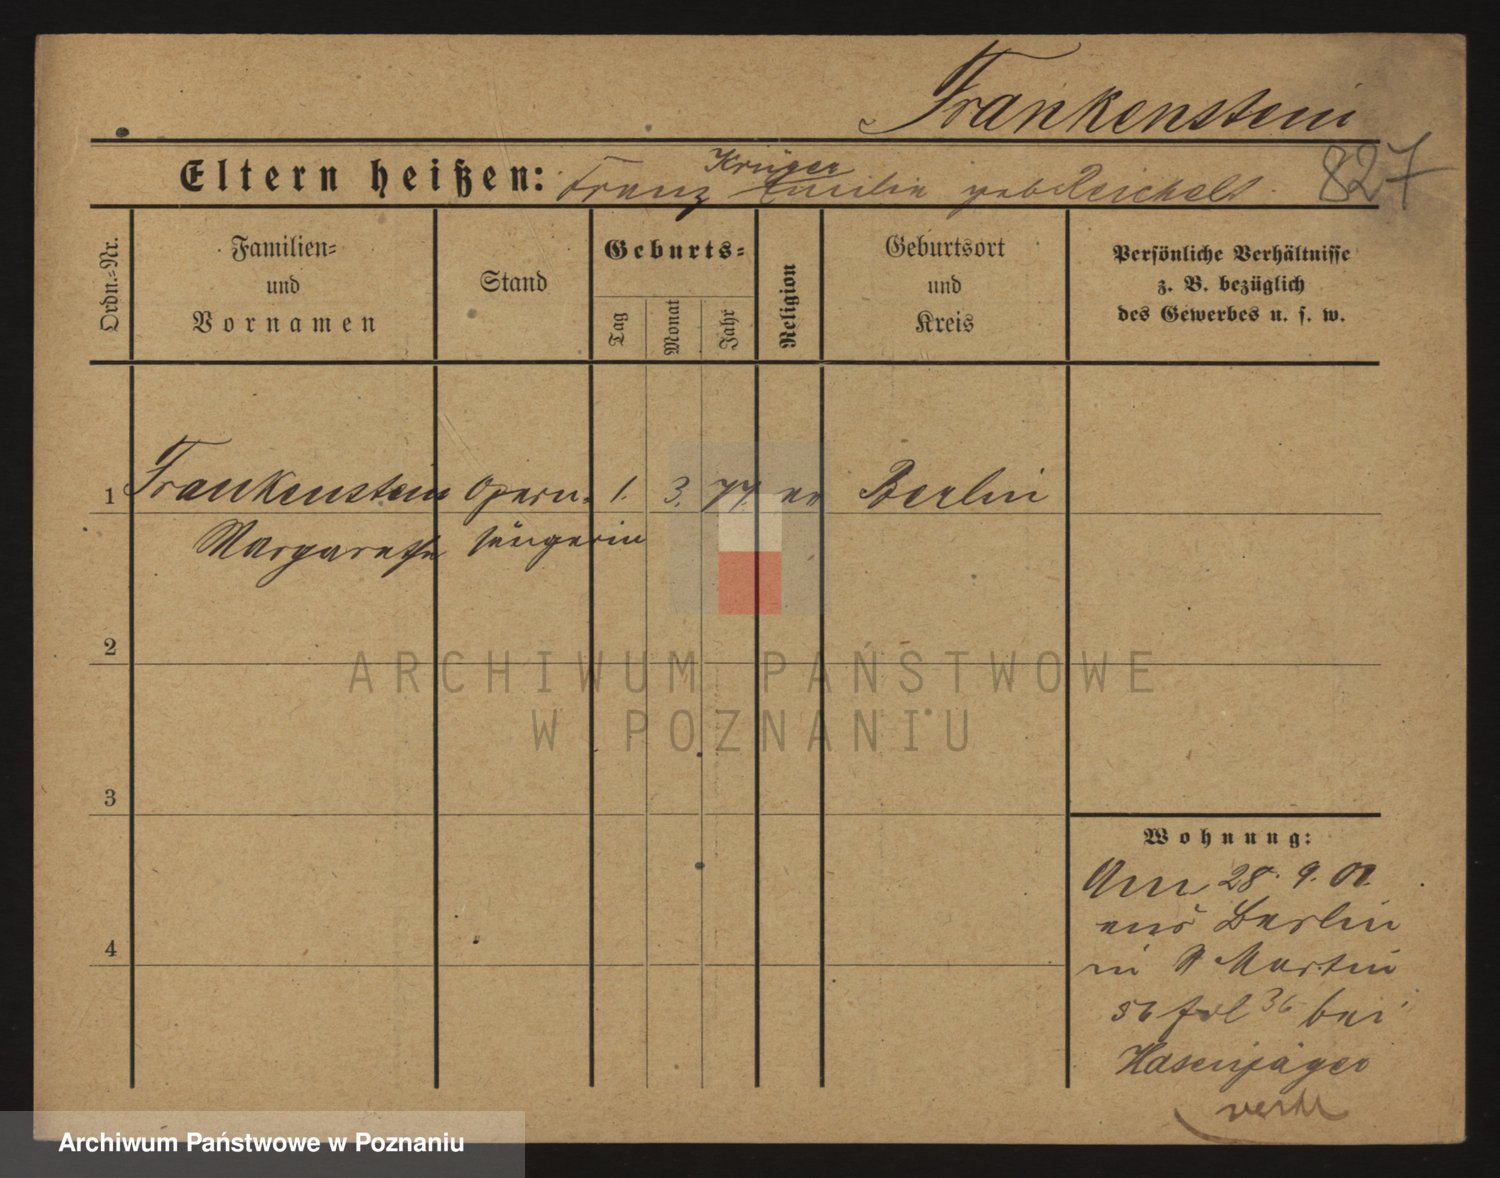 Frankenstein
827
Eltern heißen: Franz Krüger Emilie geb Reichelt
Ordn.=Nr.
Familien=
und
Vornamen
Stand
Geburts=
Tag
Monat
Jahr
Religion
Geburtsort
und
Kreis
Persönliche Verhältnisse
z. B. bezüglich
des Gewerbes u. s. w.
1 Frankenstein Opern- 1. 3. 77. ev Berlin
Margarethe sängerin
2
3
4
Wohnung:
Am 28. 9. 01.
aus Berlin
in St Martin
56 fol 36 bei
Hasenjäger
ARCHIWUM PAŃSTWOWE
W POZNANIU
Archiwum Państwowe w Poznaniu